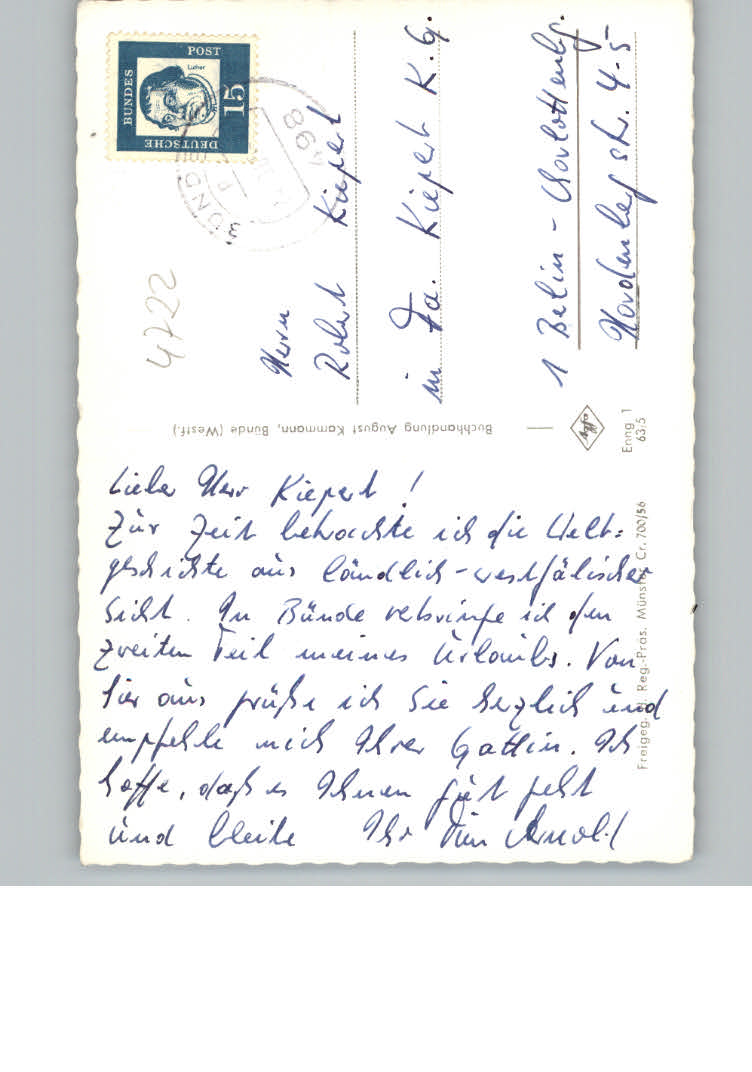 Lieber Herr Kiepert!
Zur Zeit betrachte ich die Welt=
geschichte aus ländlich-westfälischer
Sicht. In Bünde verbringe ich den
zweiten Teil meines Urlaubs. Von
hier aus grüße ich Sie herzlich und
empfehle mich Ihrer Gattin. Ich
hoffe, daß es Ihnen gut geht
und bleibe Ihr Arnold
Herrn
Robert Kiepert
in Fa. Kiepert K.G.
1 Berlin - Charlottenbg.
Hardenbergstr. 4-5
4722
DEUTSCHE
BUNDES
POST
15
Luther
498
BÜNDE
Buchhandlung August Karmann, Bünde (Westf.)
Agfa
Enng 1
63/5
Freigeg. d. Reg.-Präs. Münster Cr. 700/56